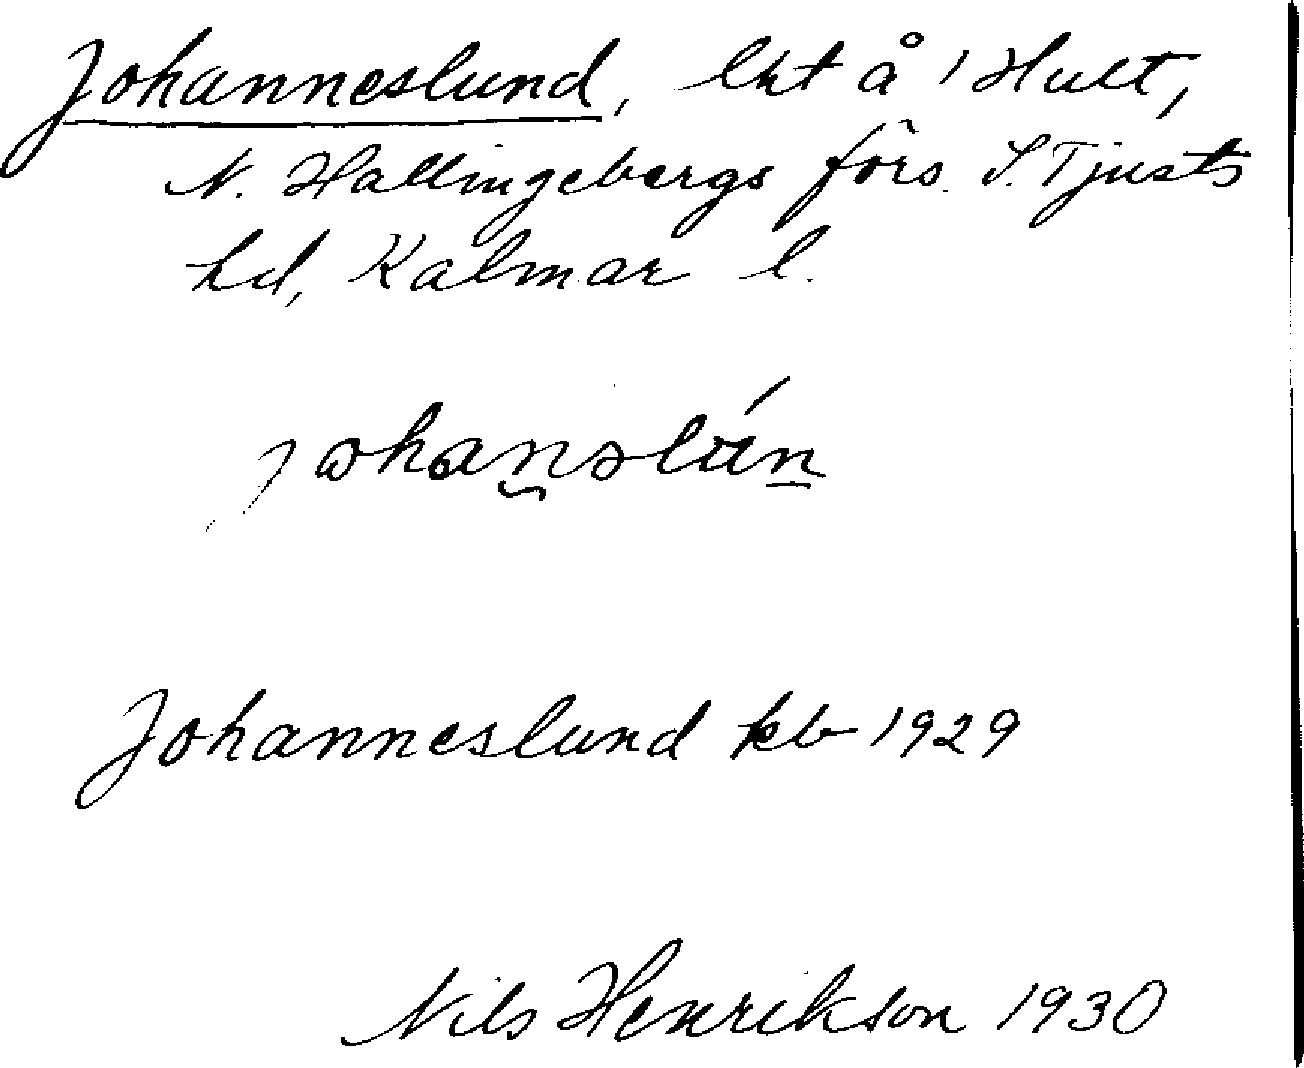 Johanneslund, lht å 1 Hult,
N. Hallingebergs förs. S. Tjusts
hd, Kalmar l.
Johanneslund kb 1929
Nils Henrikson 1930